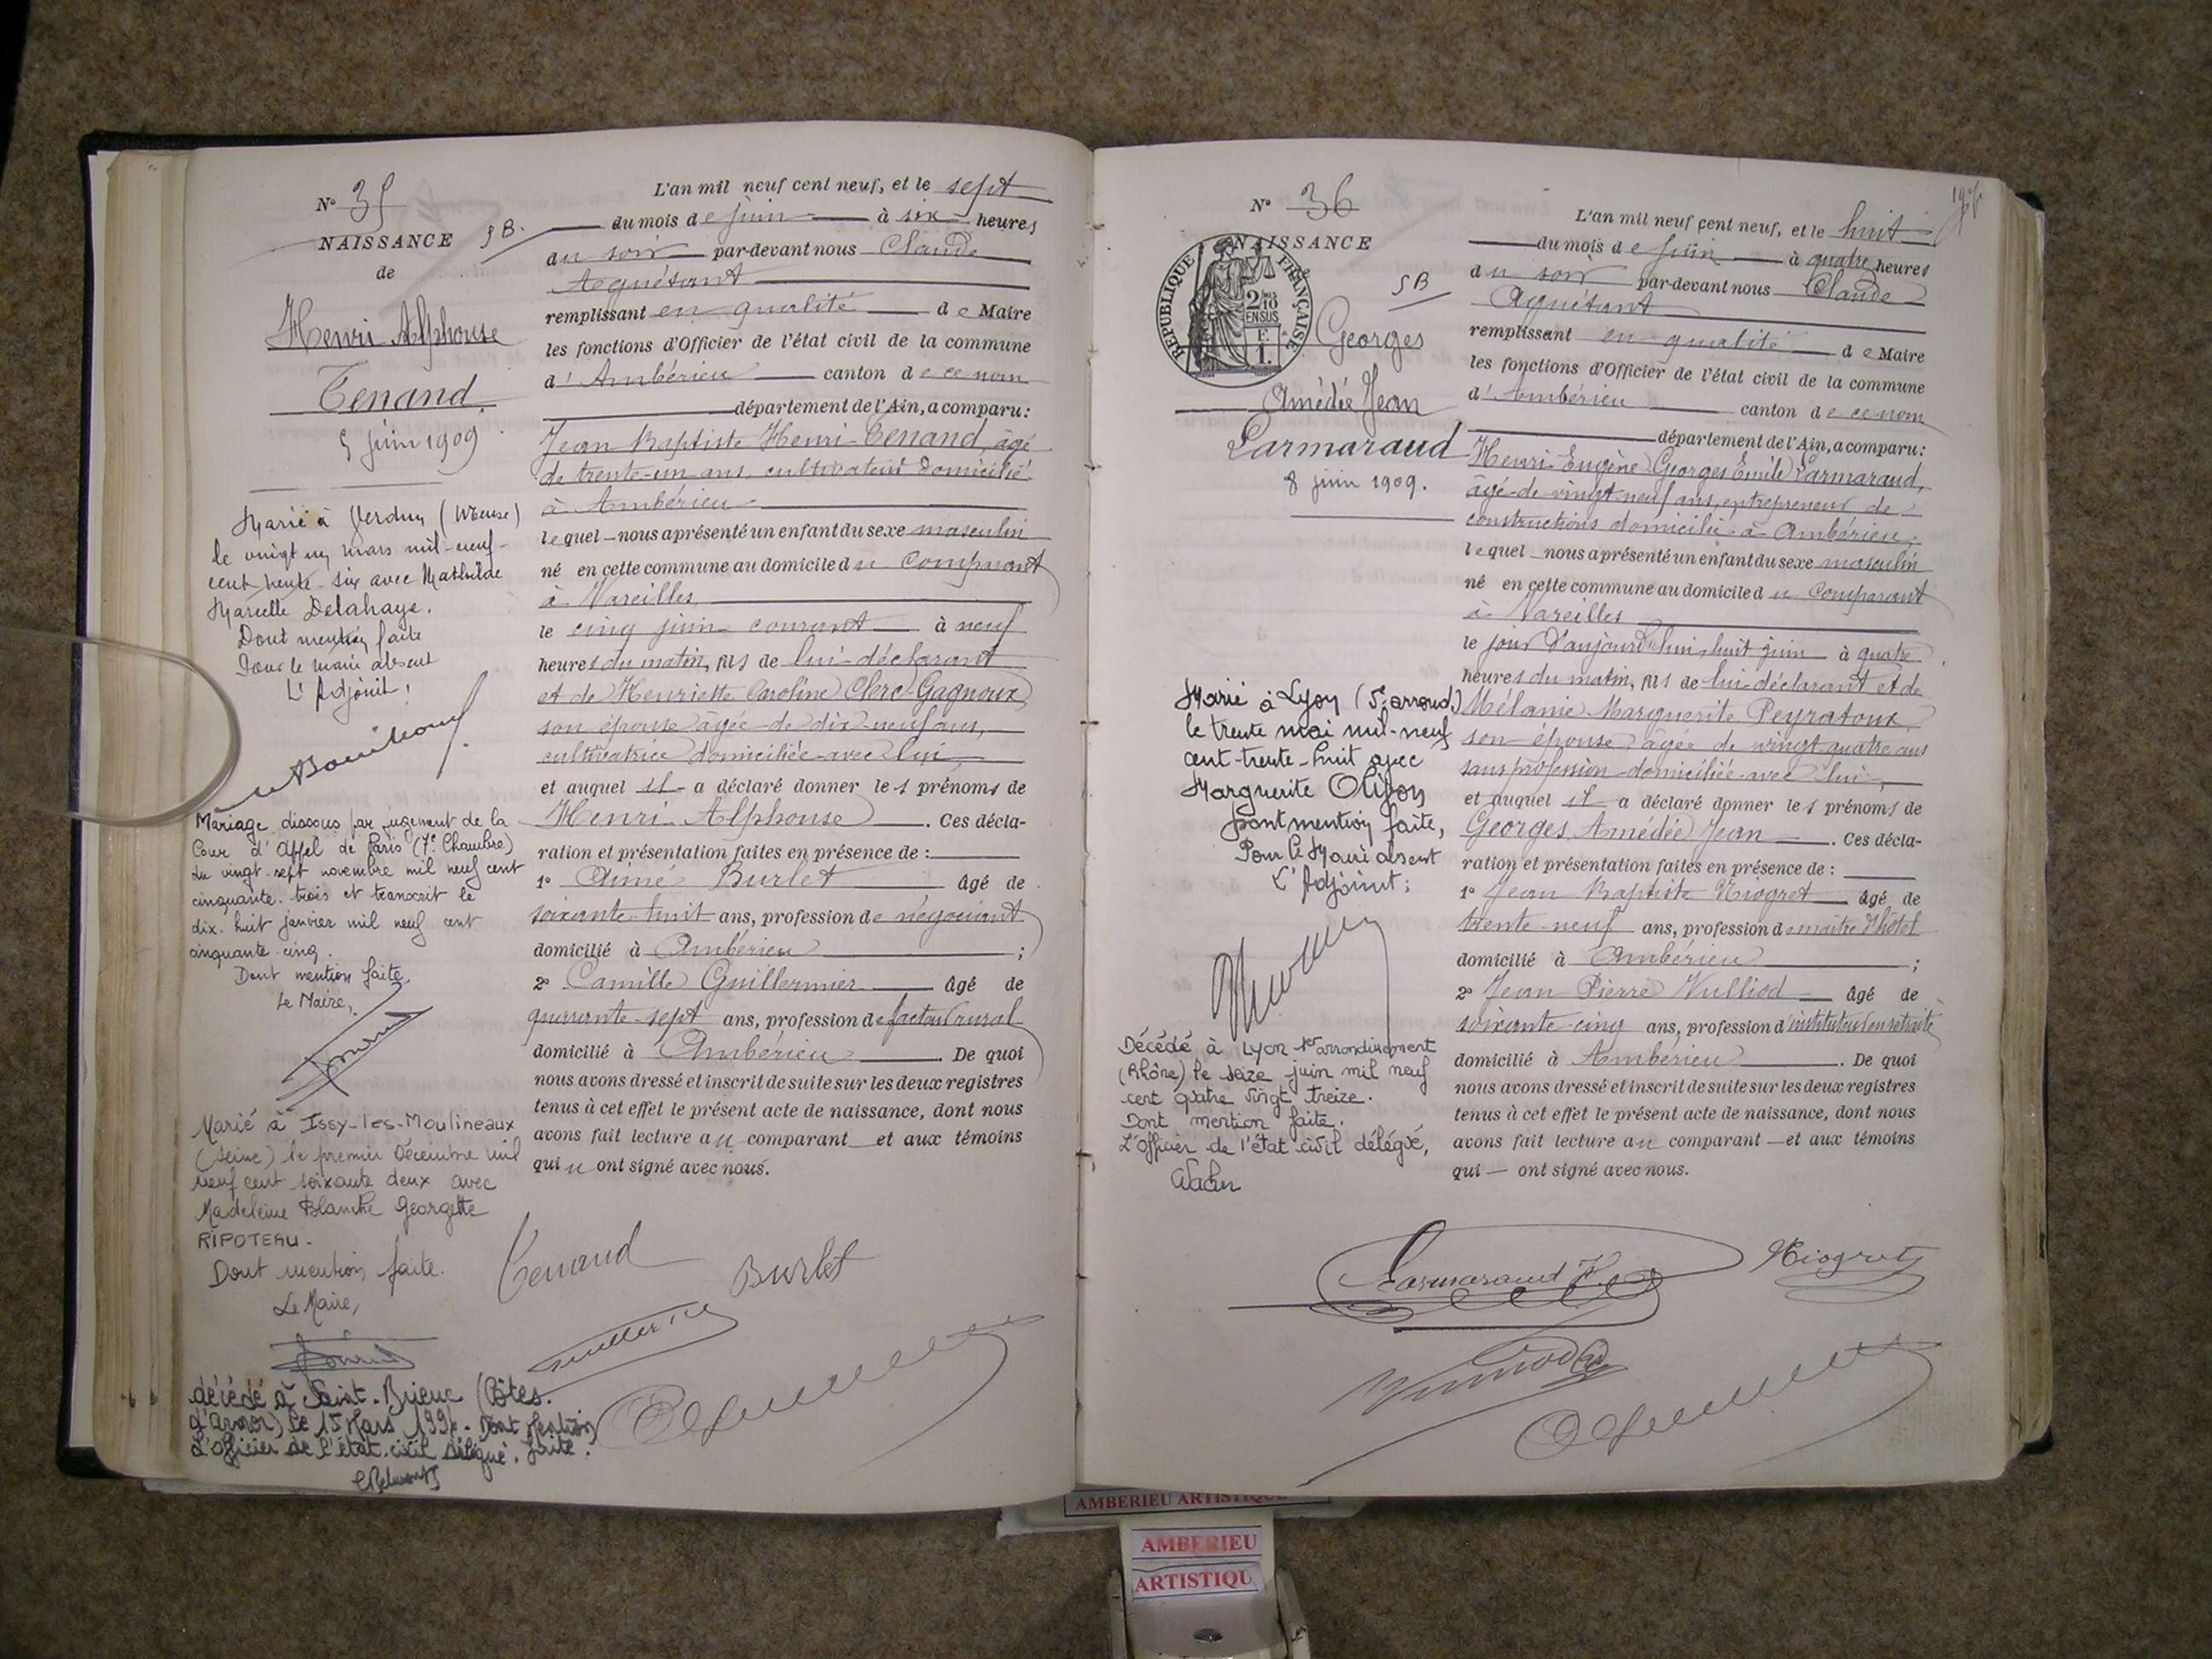 N° 35
NAISSANCE
de
Henri Alphonse
Tenand
5 juin 1909
SB.
Marié à Verdun (Meuse)
le vingt un mars mil-neuf-
cent-trente-six avec Mathilde
Marcelle Delahaye.
Dont mention faite
Pour le maire absent
L'Adjoint!
Mariage dissous par jugement de la
Cour d'Appel de Paris (7e Chambre)
du vingt-sept novembre mil neuf cent
cinquante-trois et transcrit le
dix-huit janvier mil neuf cent
cinquante-cinq.
Dont mention faite.
Le Maire,
Marié à Issy-les-Moulineaux
(Seine) le premier Décembre mil
neuf cent soixante deux avec
Madeleine Blanche Georgette
RIPOTEAU.
Dont mention faite.
Le Maire,
décédé à Saint-Brieuc (Côtes.
d'armor) le 15 Mars - Dont Mention
L'officier de l'état-civil délégué. faite.
L'an mil neuf cent neuf, et le sept
du mois de juin à six heures
du soir par-devant nous Claude
Acquétant
remplissant en qualité de Maire
les fonctions d'Officier de l'état civil de la commune
d'Ambérieu canton de ce nom
département de l'Ain, a comparu:
Jean Baptiste Henri Tenand, âgé
de trente-un ans, cultivateur domicilié
à Ambérieu
lequel nous a présenté un enfant du sexe masculin
né en cette commune au domicile du comparant
à Vareilles
le cinq juin courant à neuf
heures du matin, fils de lui déclarant
et de Henriette Caroline Clerc-Gagnoux
son épouse âgée de dix-neuf ans,
cultivatrice domiciliée avec lui,
et auquel il a déclaré donner les prénoms de
Henri Alphonse. Ces décla-
ration et présentation faites en présence de :
1° Aimé Burlet âgé de
soixante-huit ans, profession de négociant
domicilié à Ambérieu ;
2° Camille Guillermier âgé de
quarante-sept ans, profession de facteur rural
domicilié à Ambérieu. De quoi
nous avons dressé et inscrit de suite sur les deux registres
tenus à cet effet le présent acte de naissance, dont nous
avons fait lecture au comparant et aux témoins
qui ont signé avec nous.
Tenand Burlet
N° 36
NAISSANCE
RÉPUBLIQUE FRANÇAISE
2/10
EN SUS
F.
1.
SB
Georges
Amédée Jean
Larmaraud
8 juin 1909.
Marié à Lyon (5e arrond.)
le trente mai mil-neuf
cent-trente-huit avec
Marguerite
Dont mention faite,
Pour le Maire absent
L'Adjoint:
Décédé à Lyon 1er arrondissement
(Rhône) le seize juin mil neuf
cent quatre vingt treize.
Dont mention faite.
L'Officier de l'état civil délégué,
L'an mil neuf cent neuf, et le huit
du mois de juin à quatre heures
du soir par-devant nous Claude
Acquétant
remplissant en qualité de Maire
les fonctions d'Officier de l'état civil de la commune
d'Ambérieu canton de ce nom
département de l'Ain, a comparu:
Henri Eugène Georges Emile Larmaraud,
âgé de vingt neuf ans, entrepreneur de
constructions domicilié à Ambérieu,
lequel nous a présenté un enfant du sexe masculin
né en cette commune au domicile du comparant
à Vareilles
le jour d'aujourd'hui, huit juin à quatre
heures du matin, fils de lui déclarant et de
Mélanie Marguerite Peyratoux
son épouse âgée de vingt quatre ans
sans profession domiciliée avec lui,
et auquel il a déclaré donner les prénoms de
Georges Amédée Jean. Ces décla-
ration et présentation faites en présence de :
1° Jean Baptiste Niogret âgé de
trente neuf ans, profession de maître d'hôtel
domicilié à Ambérieu ;
2° Jean Pierre Vulliod âgé de
soixante-cinq ans, profession d'instituteur en retraite
domicilié à Ambérieu. De quoi
nous avons dressé et inscrit de suite sur les deux registres
tenus à cet effet le présent acte de naissance, dont nous
avons fait lecture au comparant et aux témoins
qui ont signé avec nous.
Larmaraud H. Niogret
AMBERIEU ARTISTIQUE
AMBERIEU
ARTISTIQU